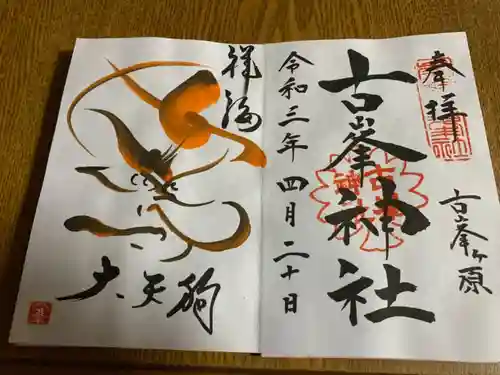 奉拝
古峯ヶ原
古峯神社
令和三年四月二十日
祥福
大天狗